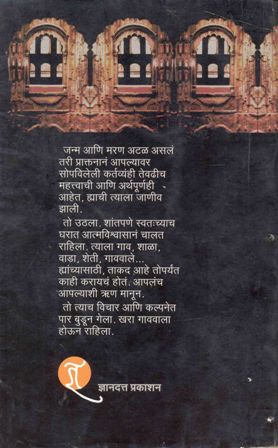 जन्म आणि मरण अटळ असलं
तरी प्राक्तनानं आपल्यावर
सोपविलेली कर्तव्यंही तेवढीच
महत्त्वाची आणि अर्थपूर्णही -
आहेत, ह्याची त्याला जाणीव
झाली.
तो उठला. शांतपणे स्वतःच्याच
घरात आत्मविश्वासानं चालत
राहिला. त्याला गाव, शाळा,
वाडा, शेती, गाववाले...
ह्यांच्यासाठी, ताकद आहे तोपर्यंत
काही करायचं होतं. आपलंच
आपल्याशी ऋण मानून.
तो त्याच विचार आणि कल्पनेत
पार बुडून गेला. खरा गाववाला
होऊन राहिला.
ज्ञानदत्त प्रकाशन